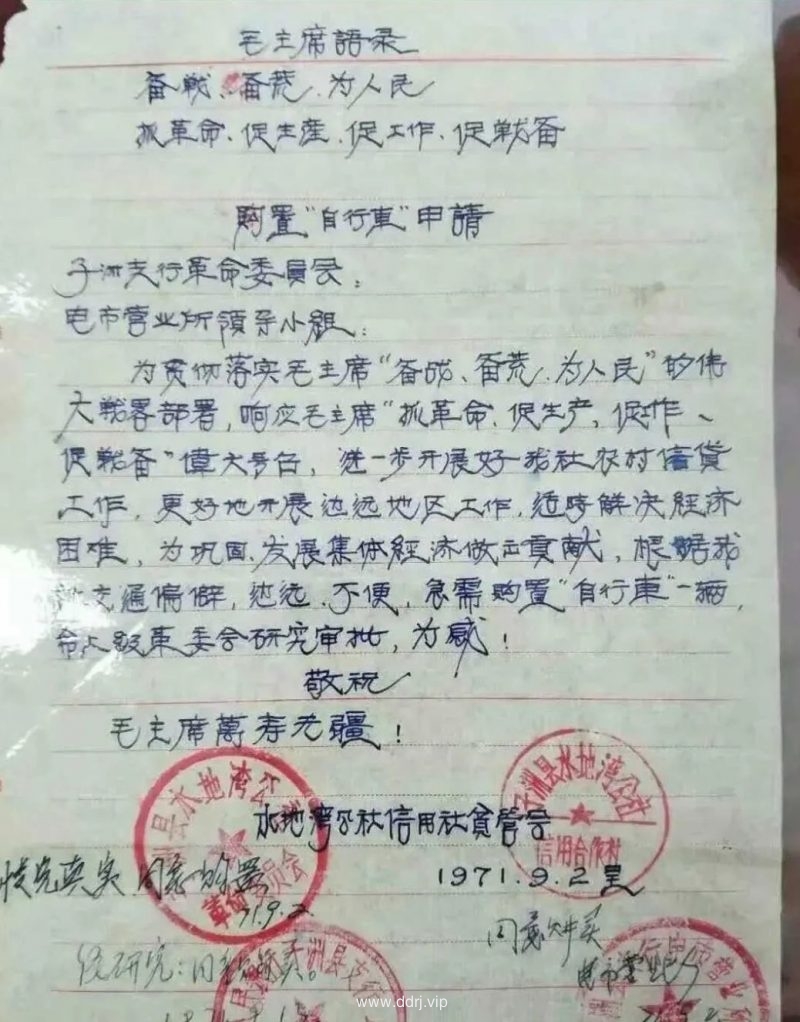 毛主席語录
备戦、备荒、为人民
抓革命、促生産、促工作、促戦备
购置"自行車"申請
子洲支行革命委員会：
电市营业所領导小組：
为贯彻落实毛主席"备战、备荒、为人民"的伟
大戦略部署，响应毛主席"抓革命、促生产、促作、
促戦备"偉大号召，进一步开展好我社农村信貸
工作，更好地开展边远地区工作，适時解决經济
困难，为巩固、发展集体經济做出貢献，根据我
交通偏僻，边远、不便，急需购置"自行車"一辆，
上級革委会研究审批，为感！
敬祝
毛主席萬寿无疆！
洲县水地湾公
革命委員会
子洲县水地湾公社
信用合作社
水地湾公社信用社貧管会
1971.9.2呈
情况真实 同意购置
71.9.2
同意
经研究：同意
洲县支行
电市营业
www.ddrj.vip